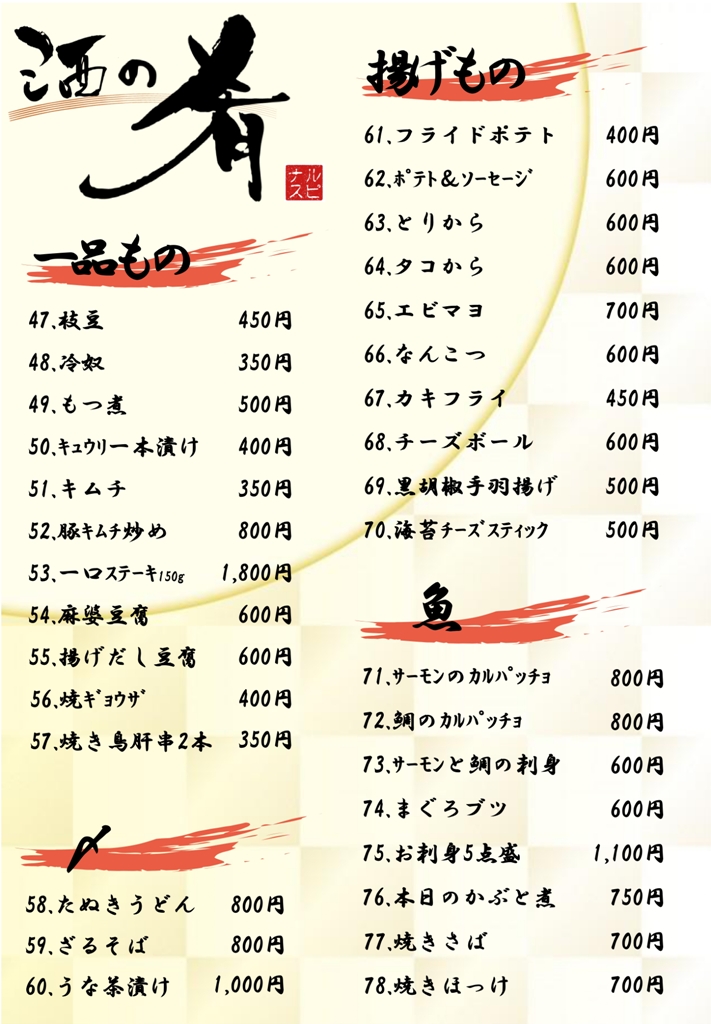 酒の肴
ルピ
ナス
一品もの
47、枝豆 450円
48、冷奴 350円
49、もつ煮 500円
50、ｷｭｳﾘ一本漬け 400円
51、キムチ 350円
52、豚ｷﾑﾁ炒め 800円
53、一口ｽﾃｰｷ150g 1,800円
54、麻婆豆腐 600円
55、揚げだし豆腐 600円
56、焼ｷﾞｮｳｻﾞ 400円
57、焼き鳥肝串2本 350円
〆
58、たぬきうどん 800円
59、ざるそば 800円
60、うな茶漬け 1,000円
揚げもの
61、フライドポテト 400円
62、ﾎﾟﾃﾄ＆ｿｰｾｰｼﾞ 600円
63、とりから 600円
64、タコから 600円
65、エビマヨ 700円
66、なんこつ 600円
67、カキフライ 450円
68、チーズボール 600円
69、黒胡椒手羽揚げ 500円
70、海苔ﾁｰｽﾞｽﾃｨｯｸ 500円
魚
71、ｻｰﾓﾝのｶﾙﾊﾟｯﾁｮ 800円
72、鯛のｶﾙﾊﾟｯﾁｮ 800円
73、ｻｰﾓﾝと鯛の刺身 600円
74、まぐろブツ 600円
75、お刺身5点盛 1,100円
76、本日のかぶと煮 750円
77、焼きさば 700円
78、焼きほっけ 700円